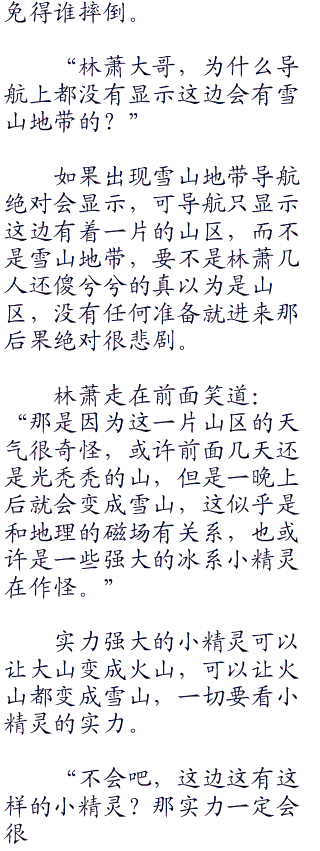 免得谁摔倒。
“林萧大哥，为什么导
航上都没有显示这边会有雪
山地带的？”
如果出现雪山地带导航
绝对会显示，可导航只显示
这边有着一片的山区，而不
是雪山地带，要不是林萧几
人还傻兮兮的真以为是山
区，没有任何准备就进来那
后果绝对很悲剧。
林萧走在前面笑道：
“那是因为这一片山区的天
气很奇怪，或许前面几天还
是光秃秃的山，但是一晚上
后就会变成雪山，这似乎是
和地理的磁场有关系，也或
许是一些强大的冰系小精灵
在作怪。”
实力强大的小精灵可以
让大山变成火山，可以让火
山都变成雪山，一切要看小
精灵的实力。
“不会吧，这边这有这
样的小精灵？那实力一定会
很